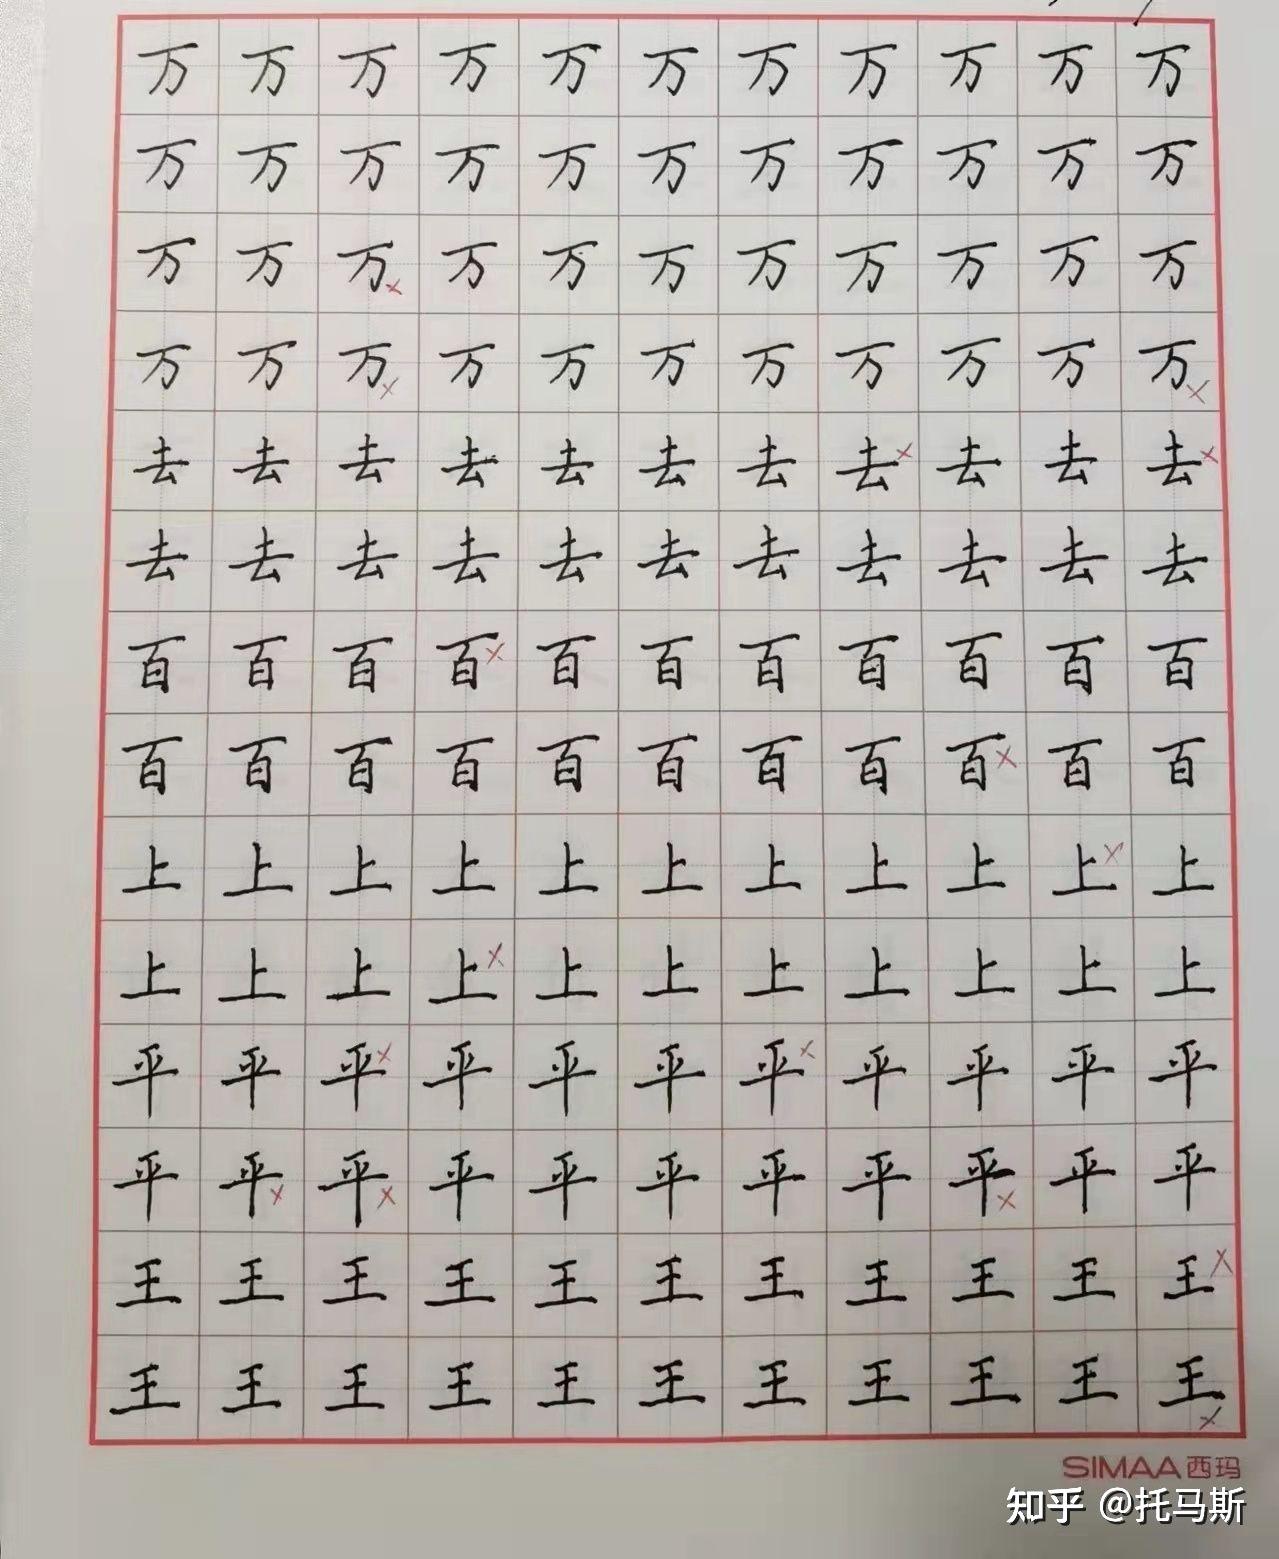 万万万万万万万万万万万
万万万万万万万万万万万
万万万万万万万万万万万
万万万万万万万万万万万
去去去去去去去去去去去
去去去去去去去去去去去
百百百百百百百百百百百
百百百百百百百百百百百
上上上上上上上上上上上
上上上上上上上上上上上
平平平平平平平平平平平
平平平平平平平平平平平
王王王王王王王王王王王
王王王王王王王王王王王
SIMAA西玛
知乎 @托马斯